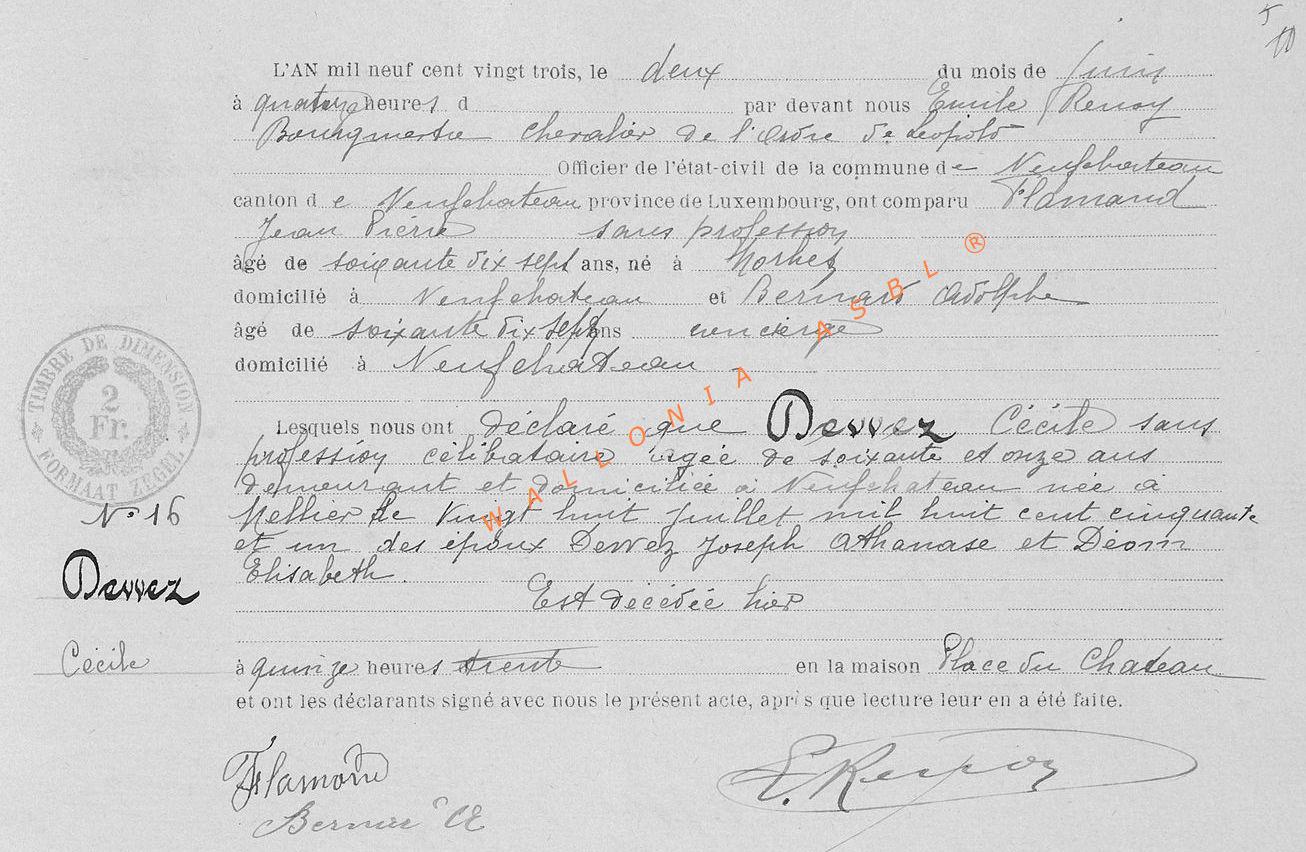 L'AN mil neuf cent vingt trois, le deux du mois de juin
à quatorze heures d par devant nous Emile
Bourgmestre chevalier de l'ordre de Léopold
Officier de l'état-civil de la commune de Neufchateau
canton de Neufchateau province de Luxembourg, ont comparu Flamand
Jean Pierre sans profession
âgé de soixante dix sept ans, né à
domicilié à Neufchateau et Bernard Adolphe
âgé de soixante dix sept ans concierge
domicilié à Neufchateau
Lesquels nous ont déclaré que Dewez Cécile sans
profession célibataire agée de soixante et onze ans
demeurant et domiciliée à Neufchateau née à
Mellier le Vingt huit Juillet mil huit cent cinquante
et un des époux Dewez Joseph Athanase et Déom
Elisabeth.
Est décédée hier
à quinze heures trente en la maison Place du Chateau
et ont les déclarants signé avec nous le présent acte, après que lecture leur en a été faite.
TIMBRE DE DIMENSION
2
Fr.
FORMAAT ZEGEL
N° 16
Dewez
Cécile
WALLONIA ASBL ®